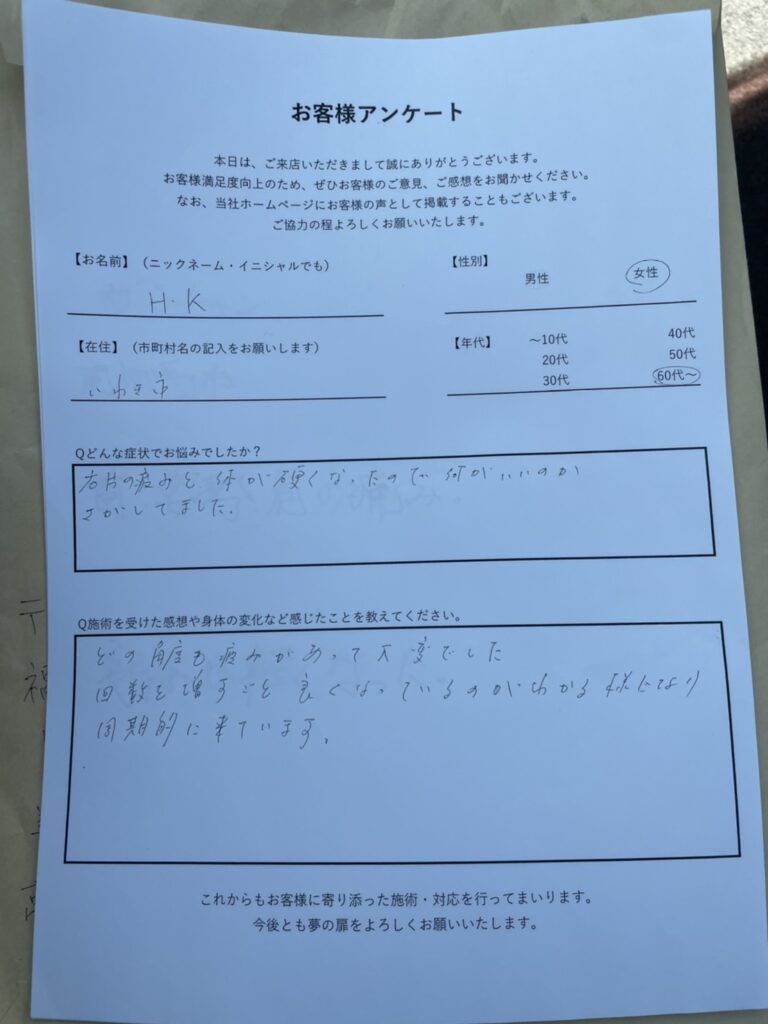 お客様アンケート
本日は、ご来店いただきまして誠にありがとうございます。
お客様満足度向上のため、ぜひお客様のご意見、ご感想をお聞かせください。
なお、当社ホームページにお客様の声として掲載することもございます。
ご協力の程よろしくお願いいたします。
【お名前】（ニックネーム・イニシャルでも）
H・K
【性別】
男性 女性
【在住】（市町村名の記入をお願いします）
いわき市
【年代】 〜10代 40代
20代 50代
30代 60代〜
Qどんな症状でお悩みでしたか？
右片の痛みと体が硬くなったので何がいいのか
さがしてました。
Q施術を受けた感想や身体の変化など感じたことを教えてください。
どの角度も痛みがあって大変でした
回数を増すごと良くなっているのがわかる様になり
周期的に来ています。
これからもお客様に寄り添った施術・対応を行ってまいります。
今後とも夢の扉をよろしくお願いいたします。